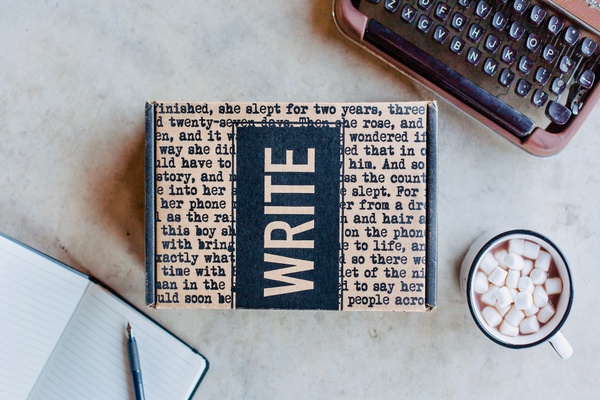 inished, she slept for two years, three
d twenty-seven days. Then she rose, and
en, and it w wondered if
way she did ed that in o
uld have to him. And so
story, and n ss the count
e into her e slept. For
her phone er from a dre
as the rai n and hair a
this boy sh on the phone
with bring e to life, an
xactly what d so there we
time with iet of the ni
man in the d to say her
uld soon be people acro
WRITE
Y U I O P
D F G H J K L
Z X C V B N M